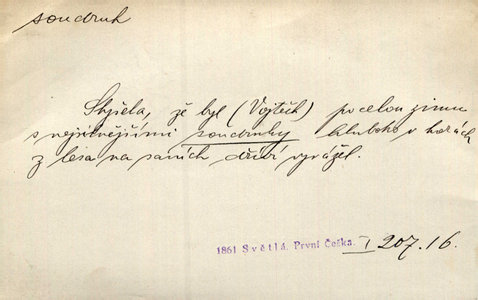 soudruh
Slyšela, že byl (Vojtěch) po celou zimu
s nejsilnějšími soudruhy hluboko v horách
z lesa na saních dříví vyvážel.
1861 Světlá. První Češka. I 207.16.